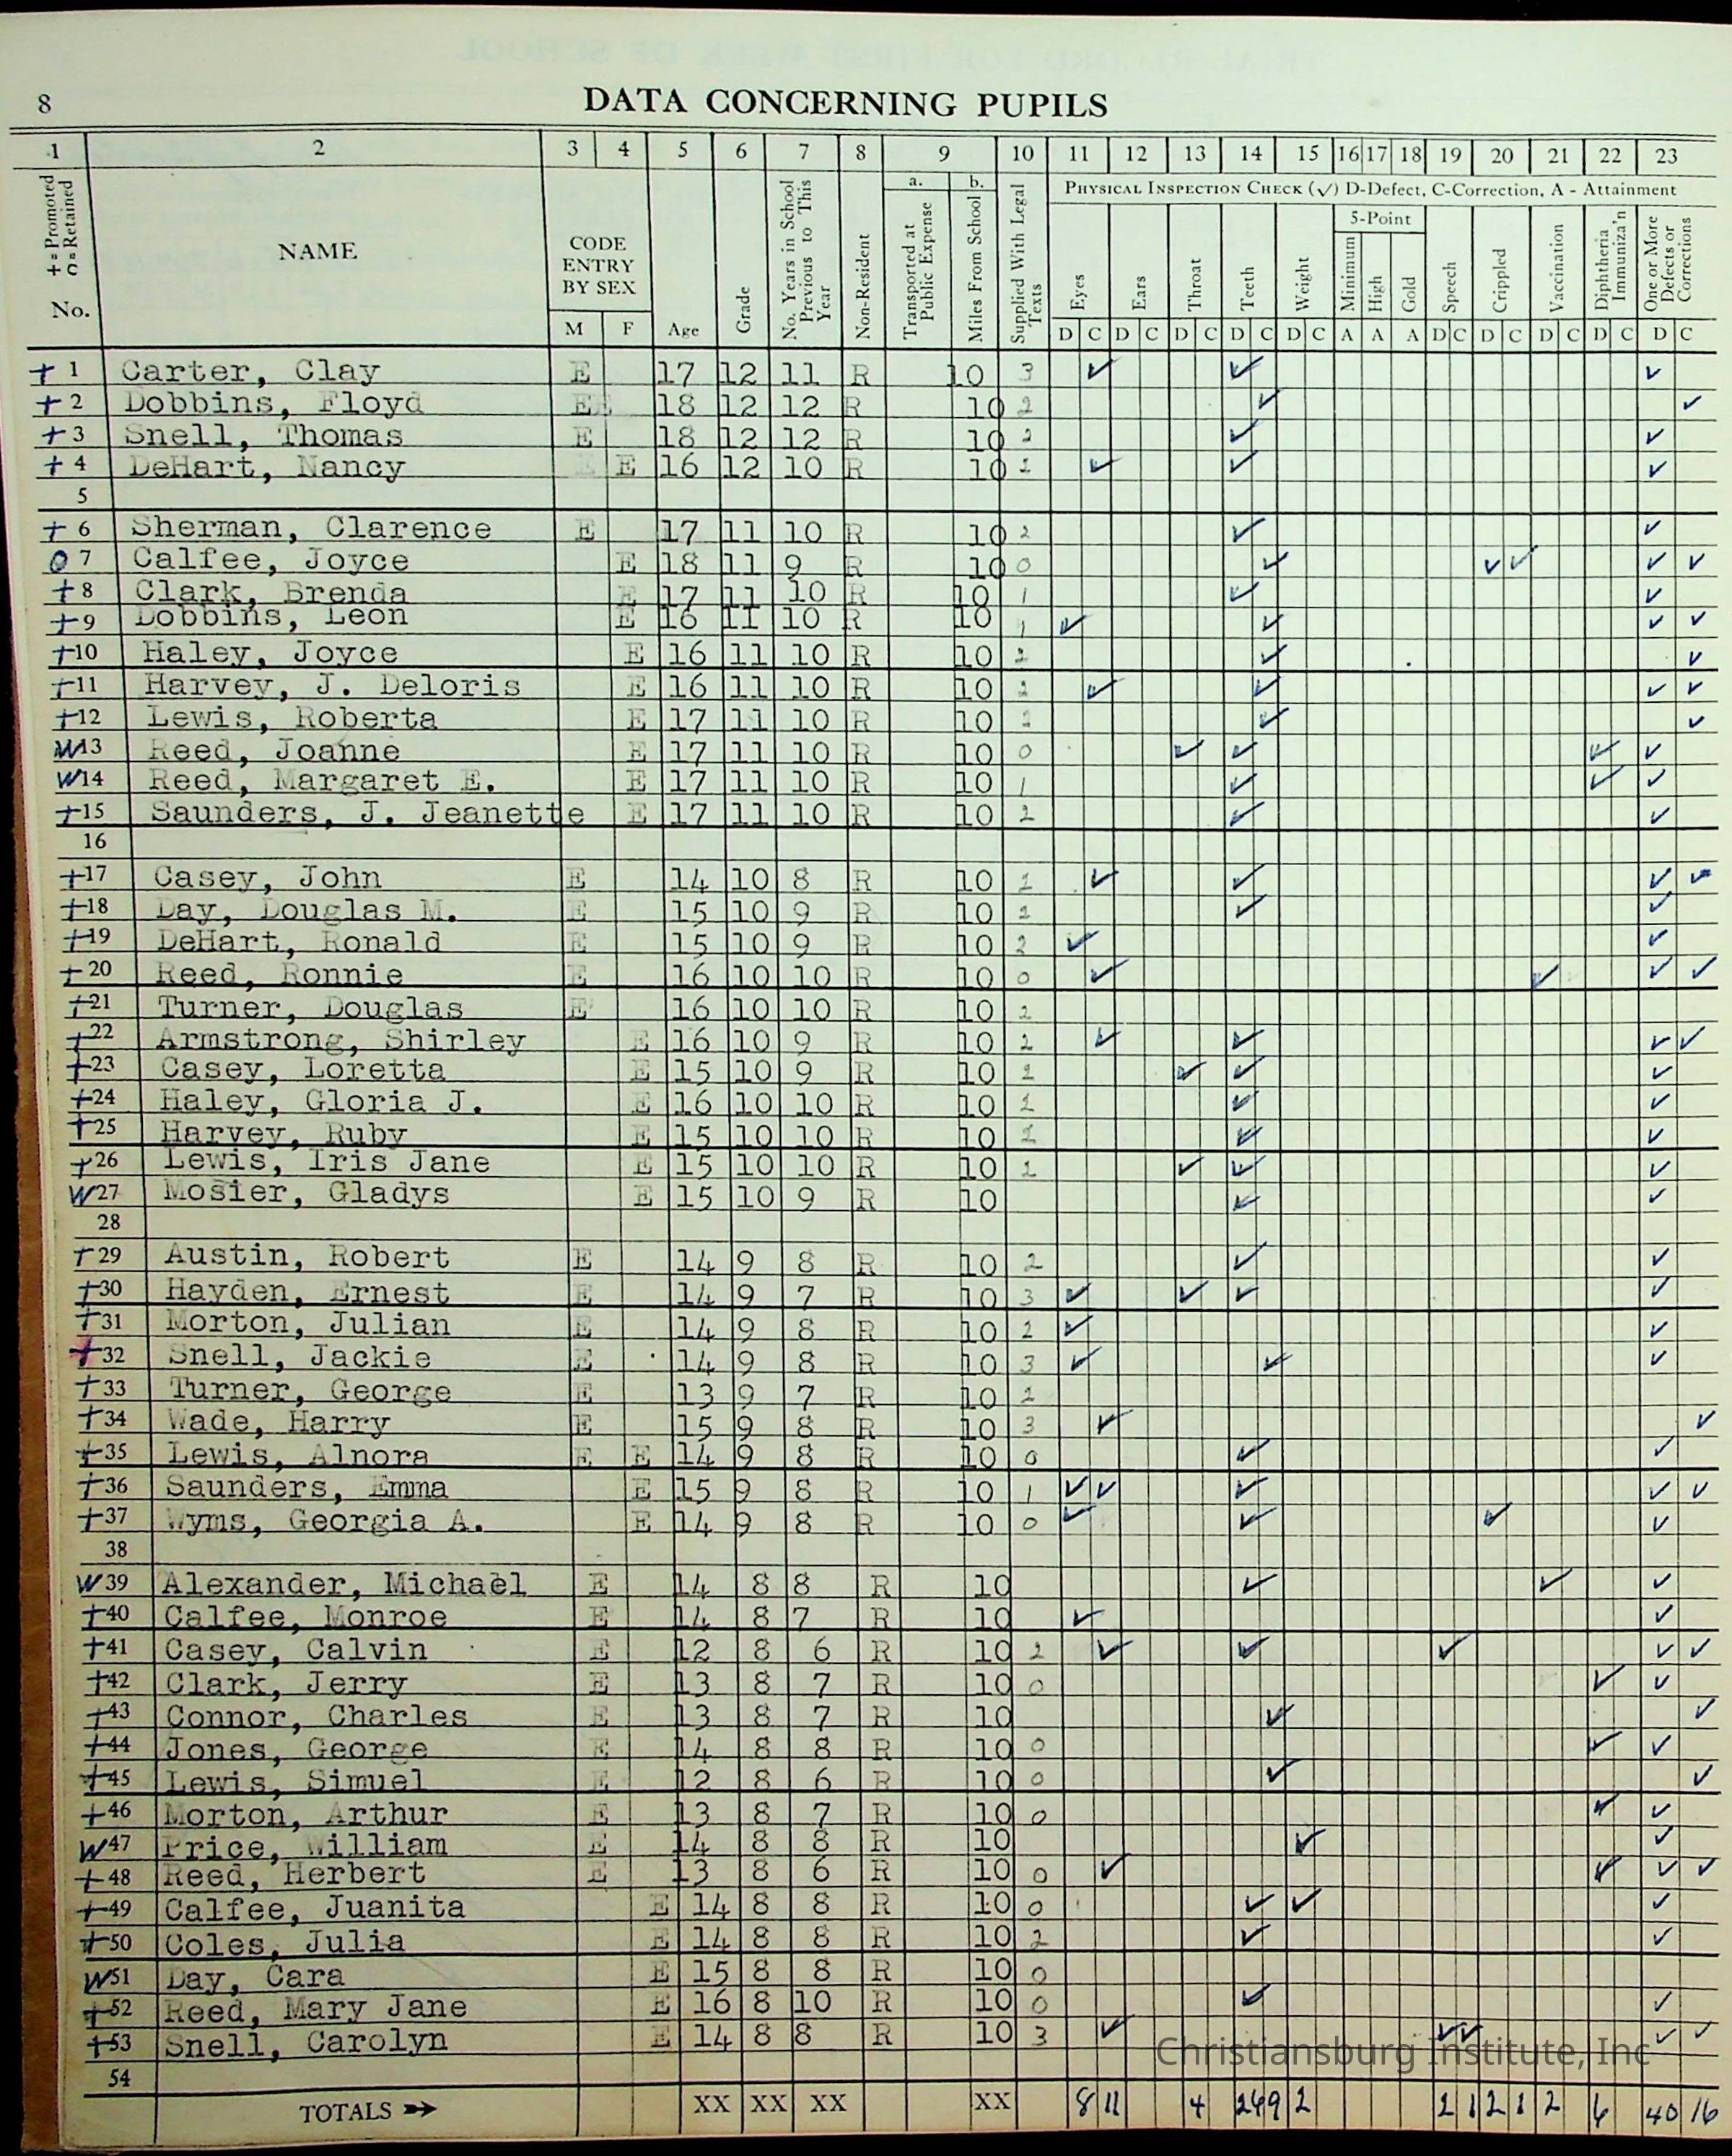 8
DATA CONCERNING PUPILS
1 2 3 4 5 6 7 8 9 10 11 12 13 14 15 16 17 18 19 20 21 22 23
+ = Promoted
O = Retained
No.
NAME
CODE ENTRY BY SEX
M F
Age
Grade
No. Years in School Previous to This Year
Non-Resident
a. b.
Transported at Public Expense
Miles From School
Supplied With Legal Texts
PHYSICAL INSPECTION CHECK (✓) D-Defect, C-Correction, A - Attainment
5-Point
Eyes Ears Throat Teeth Weight Minimum High Gold Speech Crippled Vaccination Diphtheria Immuniza'n One or More Defects or Corrections
D C D C D C D C D C A A A D C D C D C D C D C
+ 1 Carter, Clay E 17 12 11 R 10 3 ✓ ✓ ✓
+ 2 Dobbins, Floyd E 18 12 12 R 10 2 ✓ ✓
+ 3 Snell, Thomas E 18 12 12 R 10 2 ✓ ✓
+ 4 DeHart, Nancy E 16 12 10 R 10 1 ✓ ✓ ✓
5
+ 6 Sherman, Clarence E 17 11 10 R 10 2 ✓ ✓
O 7 Calfee, Joyce E 18 11 9 R 10 0 ✓ ✓ ✓ ✓ ✓
+ 8 Clark, Brenda E 17 11 10 R 10 1 ✓ ✓
+ 9 Dobbins, Leon E 16 11 10 R 10 1 ✓ ✓ ✓ ✓
+ 10 Haley, Joyce E 16 11 10 R 10 ✓ ✓
+ 11 Harvey, J. Deloris E 16 11 10 R 10 ✓ ✓ ✓ ✓
+ 12 Lewis, Roberta E 17 11 10 R 10 ✓ ✓
W 13 Reed, Joanne E 17 11 10 R 10 0 ✓ ✓ ✓ ✓
W 14 Reed, Margaret E. E 17 11 10 R 10 1 ✓ ✓ ✓
+ 15 Saunders, J. Jeanette E 17 11 10 R 10 2 ✓ ✓
16
+ 17 Casey, John E 14 10 8 R 10 1 ✓ ✓ ✓ ✓
+ 18 Day, Douglas M. E 15 10 9 R 10 ✓ ✓
+ 19 DeHart, Ronald E 15 10 9 R 10 2 ✓ ✓
+ 20 Reed, Ronnie E 16 10 10 R 10 0 ✓ ✓ ✓ ✓
+ 21 Turner, Douglas E 16 10 10 R 10 2
+ 22 Armstrong, Shirley E 16 10 9 R 10 2 ✓ ✓ ✓ ✓
+ 23 Casey, Loretta E 15 10 9 R 10 ✓ ✓ ✓
+ 24 Haley, Gloria J. E 16 10 10 R 10 ✓ ✓
+ 25 Harvey, Ruby E 15 10 10 R 10 ✓ ✓
+ 26 Lewis, Iris Jane E 15 10 10 R 10 ✓ ✓ ✓
W 27 Mosier, Gladys E 15 10 9 R 10 ✓ ✓
28
+ 29 Austin, Robert E 14 9 8 R 10 2 ✓ ✓
+ 30 Hayden, Ernest E 14 9 7 R 10 3 ✓ ✓ ✓ ✓
+ 31 Morton, Julian E 14 9 8 R 10 2 ✓ ✓
+ 32 Snell, Jackie E 14 9 8 R 10 3 ✓ ✓ ✓
+ 33 Turner, George E 13 9 7 R 10
+ 34 Wade, Harry E 15 9 8 R 10 3 ✓ ✓
+ 35 Lewis, Alnora E E 14 9 8 R 10 0 ✓ ✓
+ 36 Saunders, Emma E 15 9 8 R 10 1 ✓ ✓ ✓ ✓ ✓
+ 37 Wyms, Georgia A. E 14 9 8 R 10 0 ✓ ✓ ✓ ✓
38
W 39 Alexander, Michael E 14 8 8 R 10 ✓ ✓ ✓
+ 40 Calfee, Monroe E 14 8 7 R 10 ✓ ✓
+ 41 Casey, Calvin E 12 8 6 R 10 2 ✓ ✓ ✓ ✓ ✓
+ 42 Clark, Jerry E 13 8 7 R 10 0 ✓ ✓
+ 43 Connor, Charles E 13 8 7 R 10 ✓ ✓
+ 44 Jones, George E 14 8 8 R 10 0 ✓ ✓
+ 45 Lewis, Simuel E 12 8 6 R 10 0 ✓ ✓
+ 46 Morton, Arthur E 13 8 7 R 10 0 ✓ ✓
W 47 Price, William E 14 8 8 R 10 ✓ ✓
+ 48 Reed, Herbert E 13 8 6 R 10 0 ✓ ✓ ✓ ✓
+ 49 Calfee, Juanita E 14 8 8 R 10 0 ✓ ✓ ✓
+ 50 Coles, Julia E 14 8 8 R 10 2 ✓ ✓
W 51 Day, Cara E 15 8 8 R 10 0
+ 52 Reed, Mary Jane E 16 8 10 R 10 0 ✓ ✓
+ 53 Snell, Carolyn E 14 8 8 R 10 3 ✓ ✓ ✓ ✓ ✓
Christiansburg Institute, Inc
54
TOTALS XX XX XX XX 8 11 4 269 2 2 1 2 1 2 6 40 16